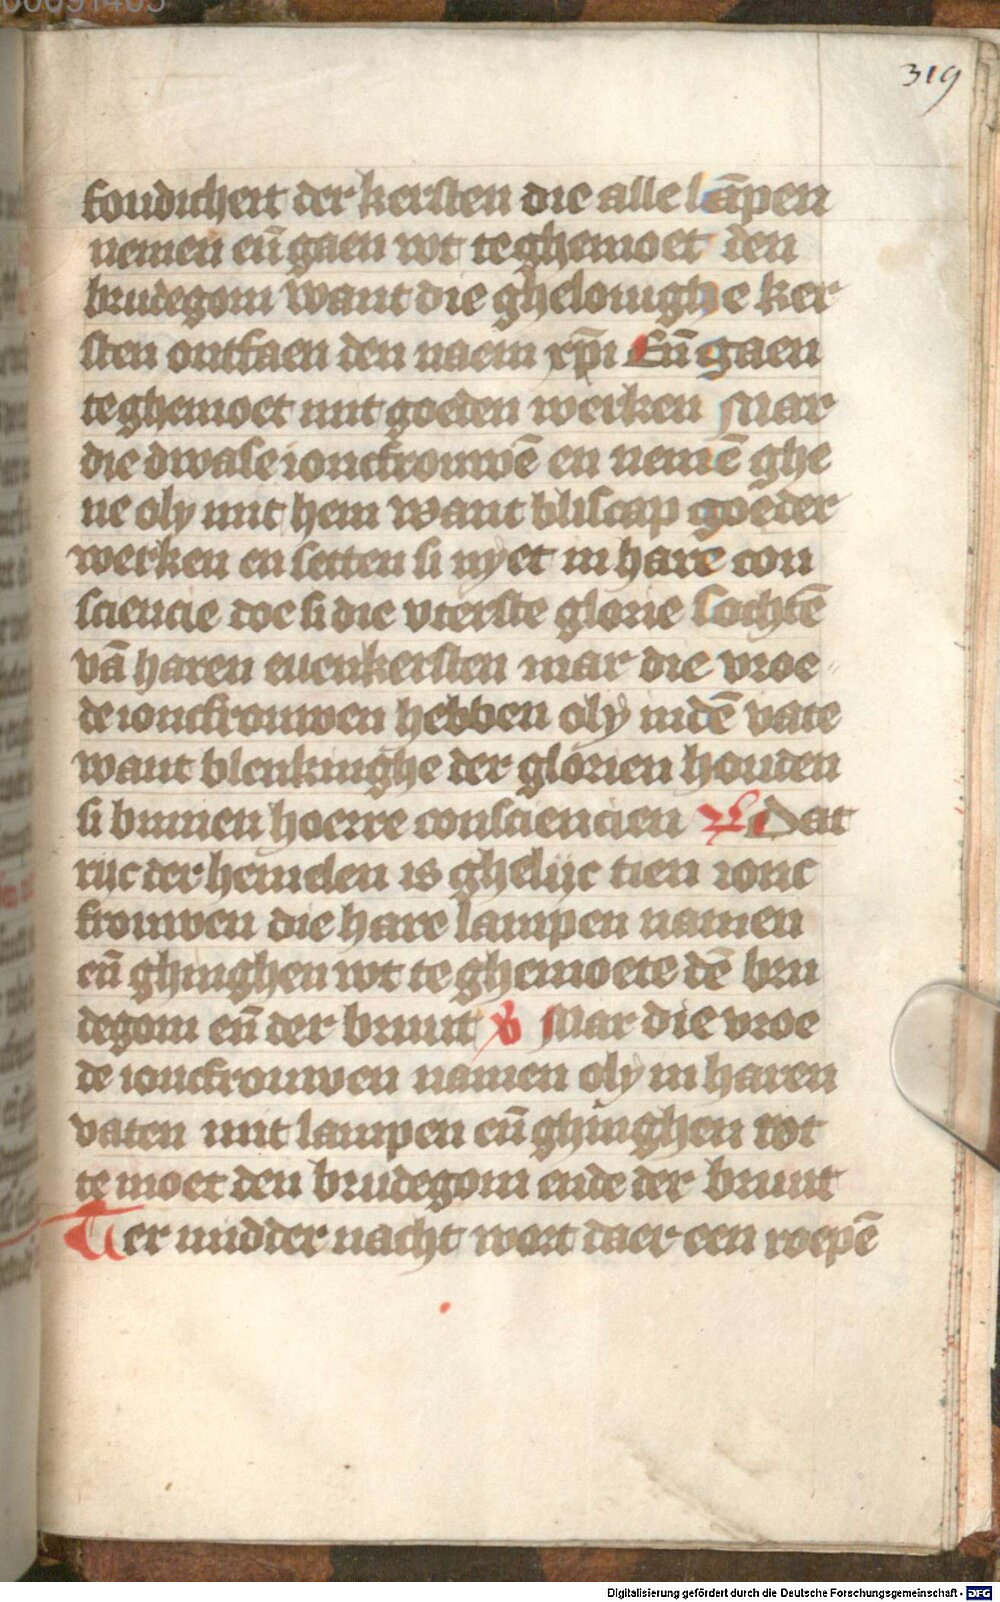 00091405
319
foudicheit der kersten die alle lāpen
nemen eñ gaen wt te ghemoet den
brudegom want die ghelouighe ker
sten ontfaen den naem xp̄i Eñ gaen
te ghemoet mit goeden werken Mar
die dwase ioncfrouwē en nemē ghe
ne oly mit hem want bliscap goeder
werken en setten si nyet in hare con
sciencie toe si die vterste glorie sochtē
vā haren euenkersten mar die vroe
de ioncfrouwen hebben oly in dē vate
want blenkinghe der glorien houden
si binnen hoerre consciencien Dat
rijc der hemelen is ghelijc tien ionc
frouwen die hare lampen namen
eñ ghinghen wt te ghemoete dē bru
degom eñ der bruut ꝟ Mar die vroe
de ioncfrouwen namen oly in haren
vaten mit lampen eñ ghinghen wt
te moet den brudegom ende der bruut
Ter midder nacht wort daer een roepē
Digitalisierung gefördert durch die Deutsche Forschungsgemeinschaft - DFG